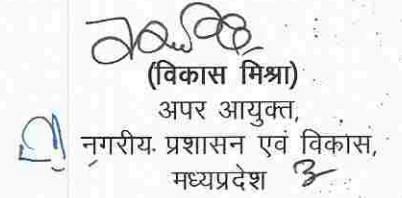 (विकास मिश्रा)
अपर आयुक्त,
नगरीय. प्रशासन एवं विकास,
मध्यप्रदेश